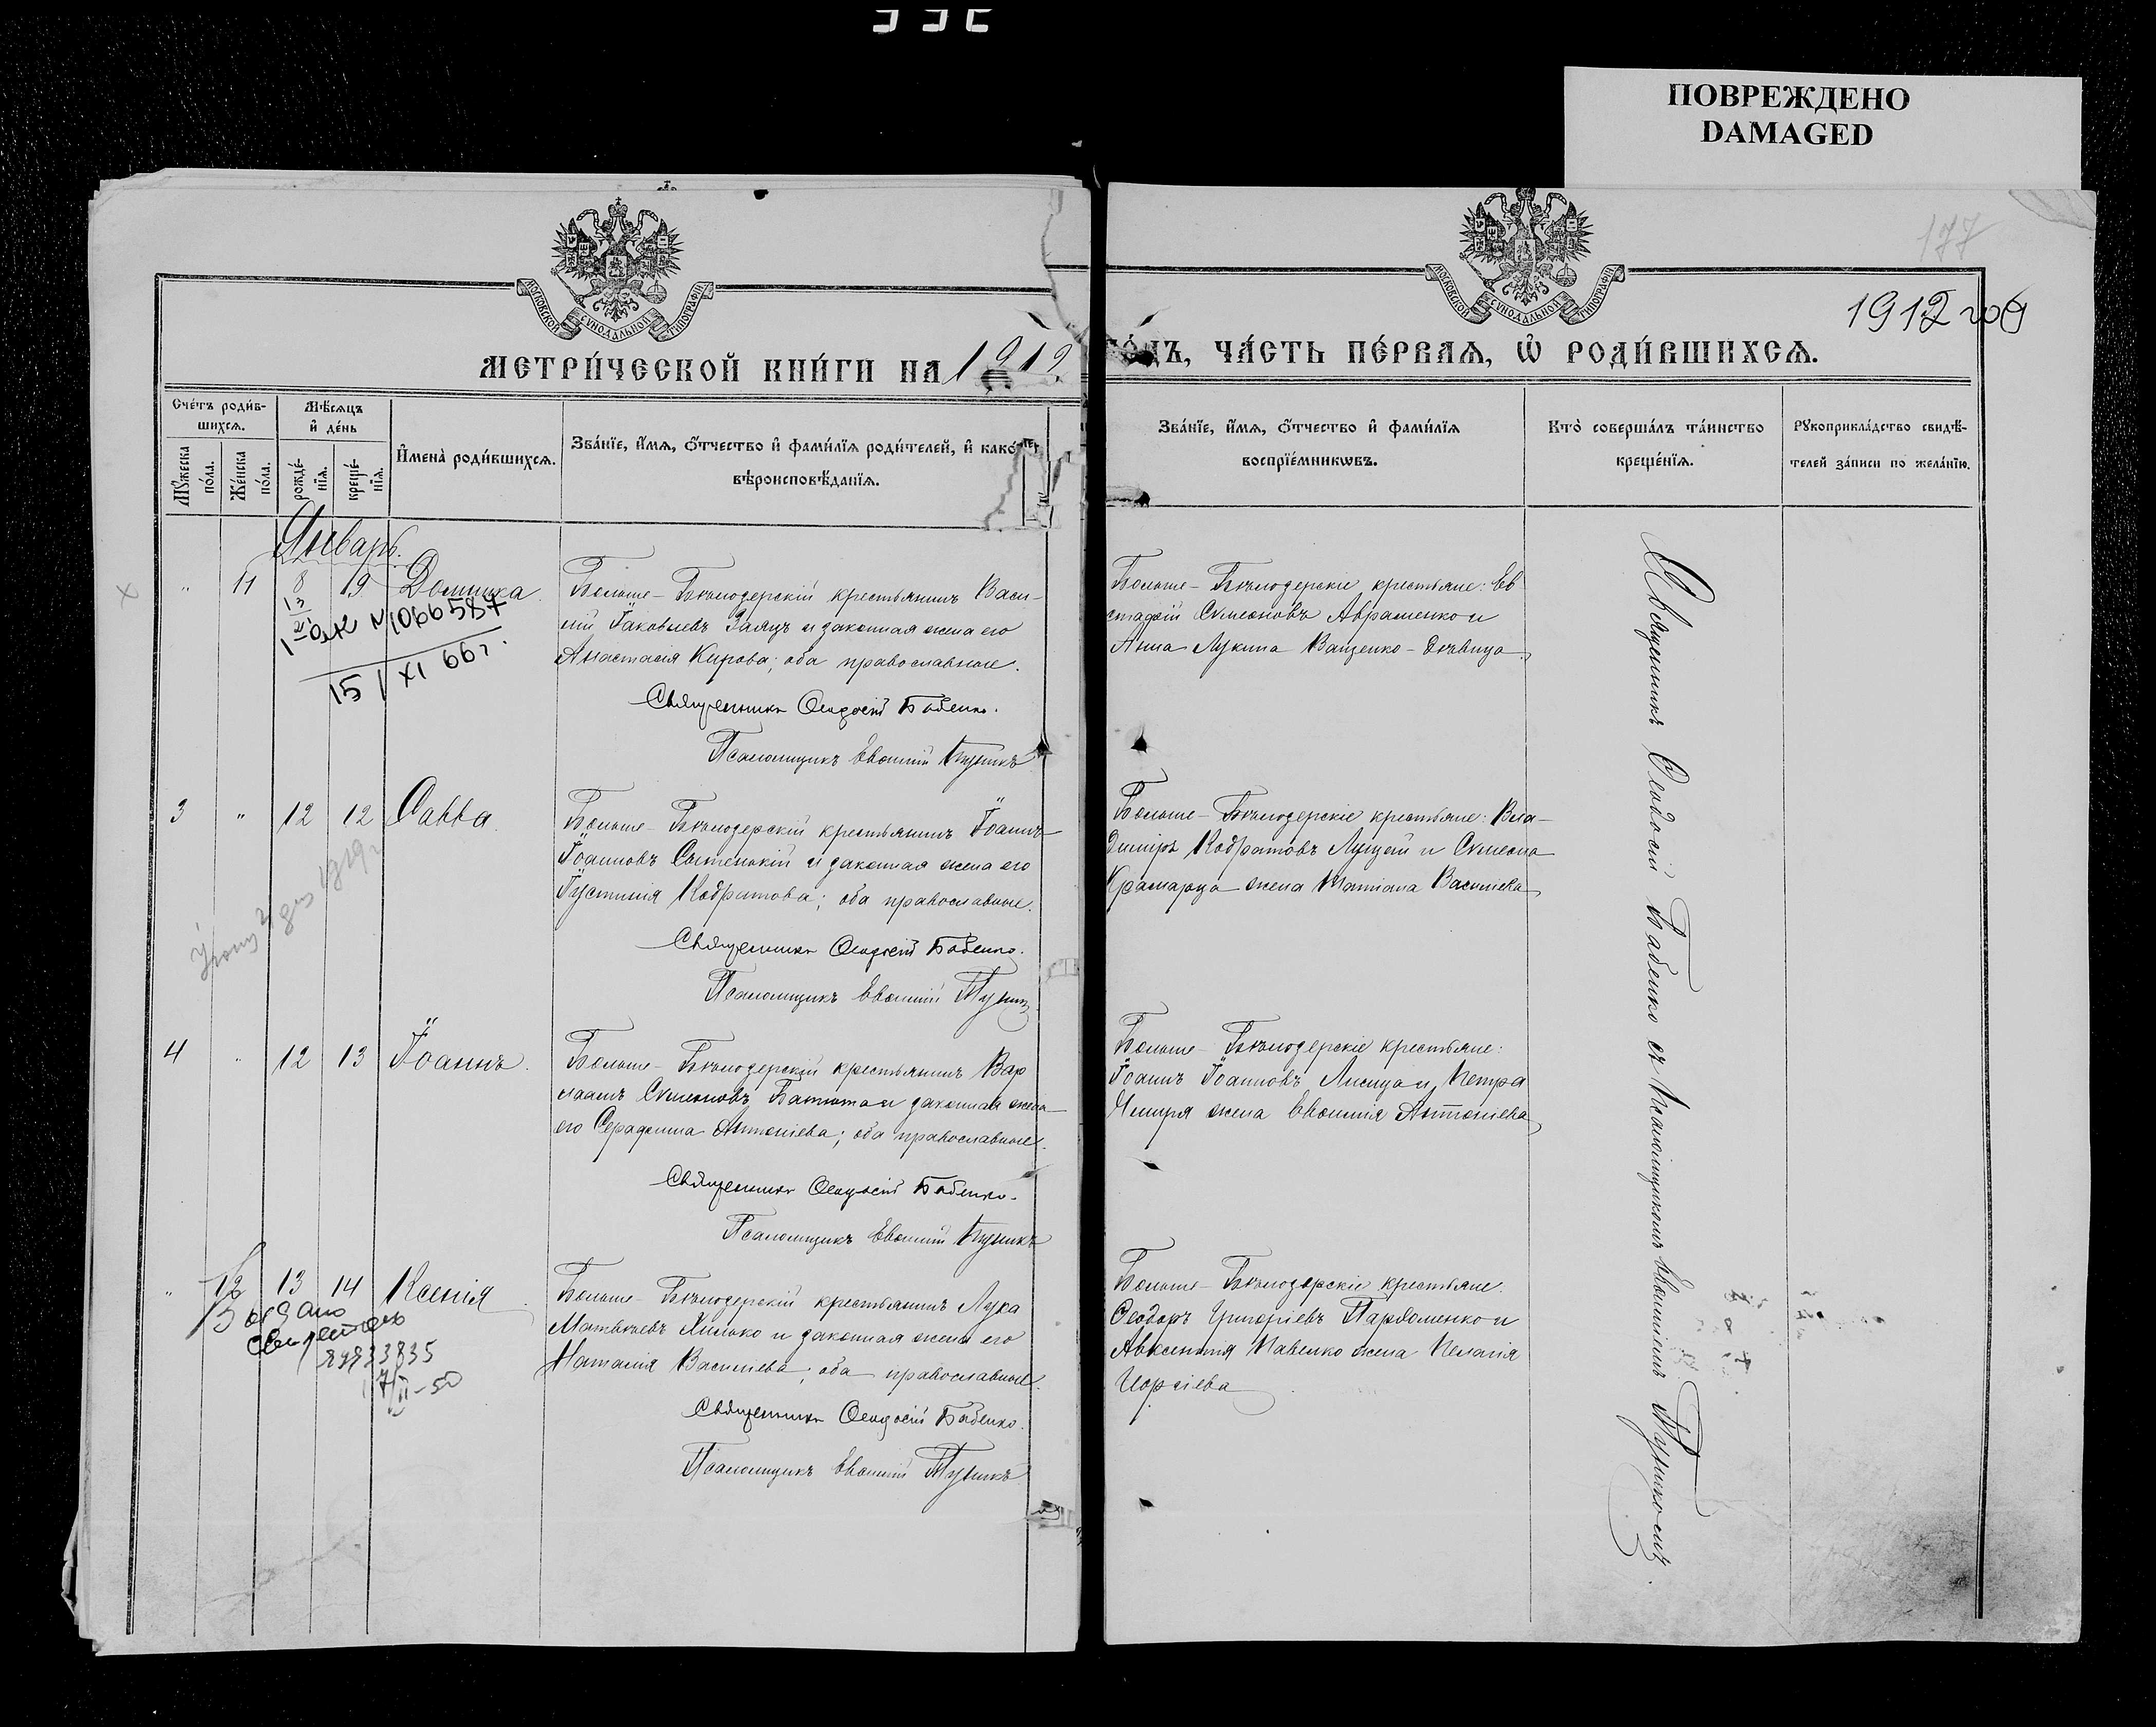 ПОВРЕЖДЕНО
DAMAGED
177
1912 год
МОСКОВСКОЙ СѴНОДАЛЬНОЙ ТИПОГРАФІИ
МОСКОВСКОЙ СѴНОДАЛЬНОЙ ТИПОГРАФІИ
МЕТРИ́ЧЕСКОЙ КНИ́ГИ НА 1912
ГО́ДЪ, ЧА́СТЬ ПЕ́РВАѦ, Ѡ҆ РОДИ́ВШИХСѦ.
Сче́тъ роди́в-
шихсѧ.
Мꙋ́жеска
по́ла.
Же́нска
по́ла.
Мѣ́сѧцъ
и҆ де́нь
рожде́-
нїѧ.
креще́-
нїѧ.
И҆мена̀ роди́вшихсѧ.
Зва́нїе, и҆́мѧ, ѻ҆́тчество и҆ фами́лїѧ роди́телей, и҆ како́
вѣроисповѣ́данїѧ.
Зва́нїе, и҆́мѧ, ѻ҆́тчество и҆ фами́лїѧ
воспрїе́мникѡвъ.
Кто̀ соверша́лъ та́инство
креще́нїѧ.
Рꙋкоприкла́дство свидѣ́-
телей за́писи по жела́нїю.
Январь.
" 11 8 19 Домника.
№ 1066587
15/XI 66 г.
Больше-Бѣлозерскій крестьянинъ Васи-
лій Іаковлевъ Заяцъ и законная жена его
Анастасія Кирова; оба православные.
Священникъ Ѳеодосій Бабенко.
Псаломщикъ Евѳимій Пушикъ
Больше-Бѣлозерскіе крестьяне: Ев
стафій Симеоновъ Авраменко и
Анна Лукина Ващенко-дѣвица
3 " 12 12 Савва.
Больше-Бѣлозерскій крестьянинъ Іоаннъ
Іоанновъ Сытенькій и законная жена его
Іустинія Кодратова; оба православные.
Священникъ Ѳеодосій Бабенко.
Псаломщикъ Евѳимій Пушикъ
Больше-Бѣлозерскіе крестьяне: Вла-
димірѣ Кодратовъ Луцай и Симеона
Крамарца жена Татіана Василіева
4 " 12 13 Іоаннъ.
Больше-Бѣлозерскій крестьянинъ Вар
лаамъ Симеоновъ Батюта и законная жена
его Серафима Антоніева; оба православные.
Священникъ Ѳеодосій Бабенко.
Псаломщикъ Евѳимій Пушикъ
Больше-Бѣлозерскіе крестьяне:
Іоаннъ Іоанновъ Лисица и Петра
жена Евѳимія Антоніева
" 12 13 14 Ксенія.
Выдано
7/II-50
Больше-Бѣлозерскій крестьянинъ Лука
Матвѣевъ Хилько и законная жена его
Наталія Василіева; оба православные.
Священникъ Ѳеодосій Бабенко.
Псаломщикъ Евѳимій Пушикъ
Больше-Бѣлозерскіе крестьяне.
Ѳеодоръ Григоріевъ Парѳоменко и
Авксентія Павенко жена Пелагія
Священникъ Ѳеодосій Бабенко съ псаломщикомъ Евѳиміемъ Пушикомъ.